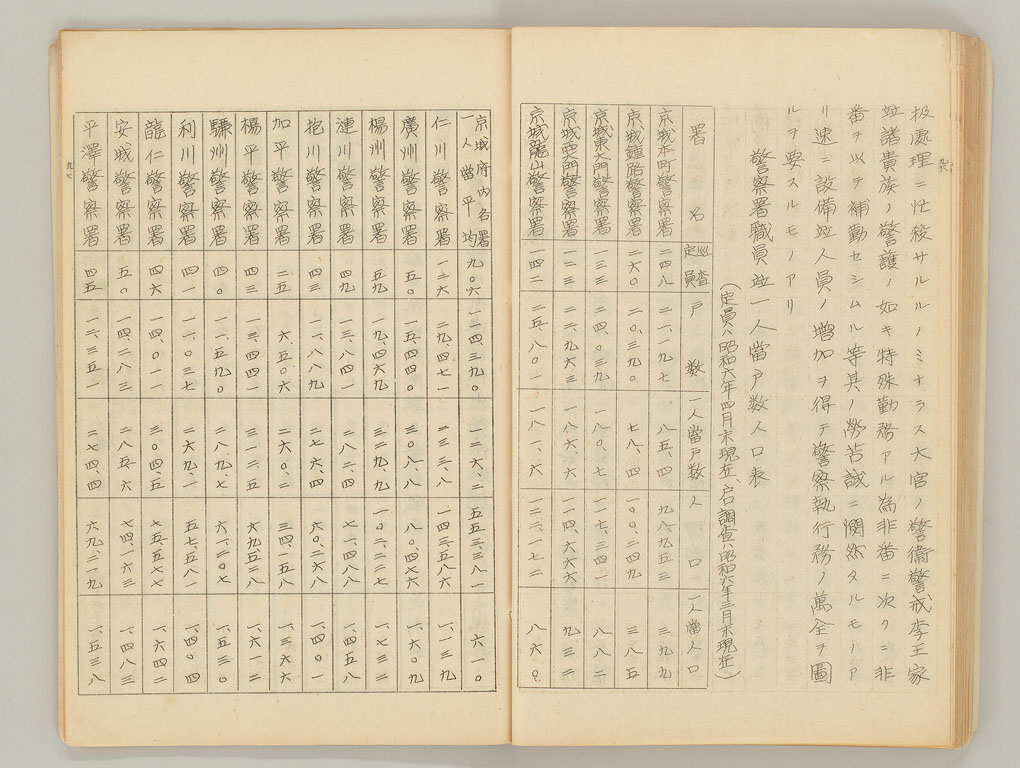 九六
扱處理ニ忙殺サルルノミナラス大官ノ警衞警戒李王家
竝諸貴族ノ警護ノ如キ特殊勤務アル為非番ニ次クニ非
番ヲ以テ補勤セシムル等其ノ勞苦誠ニ憫然タルモノア
リ速ニ設備竝人員ノ增加ヲ得テ警察執行務ノ萬全ヲ圖
ルヲ要スルモノアリ
警察署職員竝一人當戸數人口表
(定員ハ昭和六年四月末現在、戸口調査ハ昭和六年三月末現在)
署名 巡査定員 戸數 一人當戸數 人口 一人當人口
京城本町警察署 二四八 二一、一九七 八五、四 九八、九五三 三九九
京城鍾路警察署 二六〇 二〇、三九〇 七八、四 一〇〇、二四九 三八五
京城東大門警察署 一三三 二四、〇三九 一八〇、七 一一七、三四一 八八二
京城西大門警察署 一二三 二二、九六三 一八六、六 一一四、六六六 九三二
京城龍山警察署 一四二 二五、八〇一 一八一、六 一二二、一七二 八六〇
京城府內各署一人當平均 九〇六 一一四、三九〇 一二六、二 五五三、三八一 六一〇
仁川警察署 一二六 二九、四七一 二三三、八 一四三、五八六 一、一三九
廣州警察署 五〇 一五、四四〇 三〇八、八 八〇、四七六 一、六〇九
楊州警察署 五九 一九、四六九 三二九、九 一〇二、二二七 一、七三二
漣川警察署 四九 一三、八四一 二八二、四 七一、四八八 一、四五八
抱川警察署 四三 一一、八八九 二七六、四 六〇、二六八 一、四〇一
加平警察署 二五 六、五〇六 二六〇、二 三四、一五八 一、三六六
楊平警察署 四三 一三、四四一 三一二、五 六九、五二八 一、六一二
驪州警察署 四〇 一一、五九〇 二八九、七 六一、二〇七 一、五三〇
利川警察署 四一 一一、〇三七 二六九、一 五七、五八一 一、四〇四
龍仁警察署 四六 一四、〇一一 三〇四、五 七五、五七七 一、六四二
安城警察署 五〇 一四、二八三 二八五、六 七四、一六三 一、四八三
平澤警察署 四五 一二、三五一 二七四、四 六九、二一九 一、五三八
九七